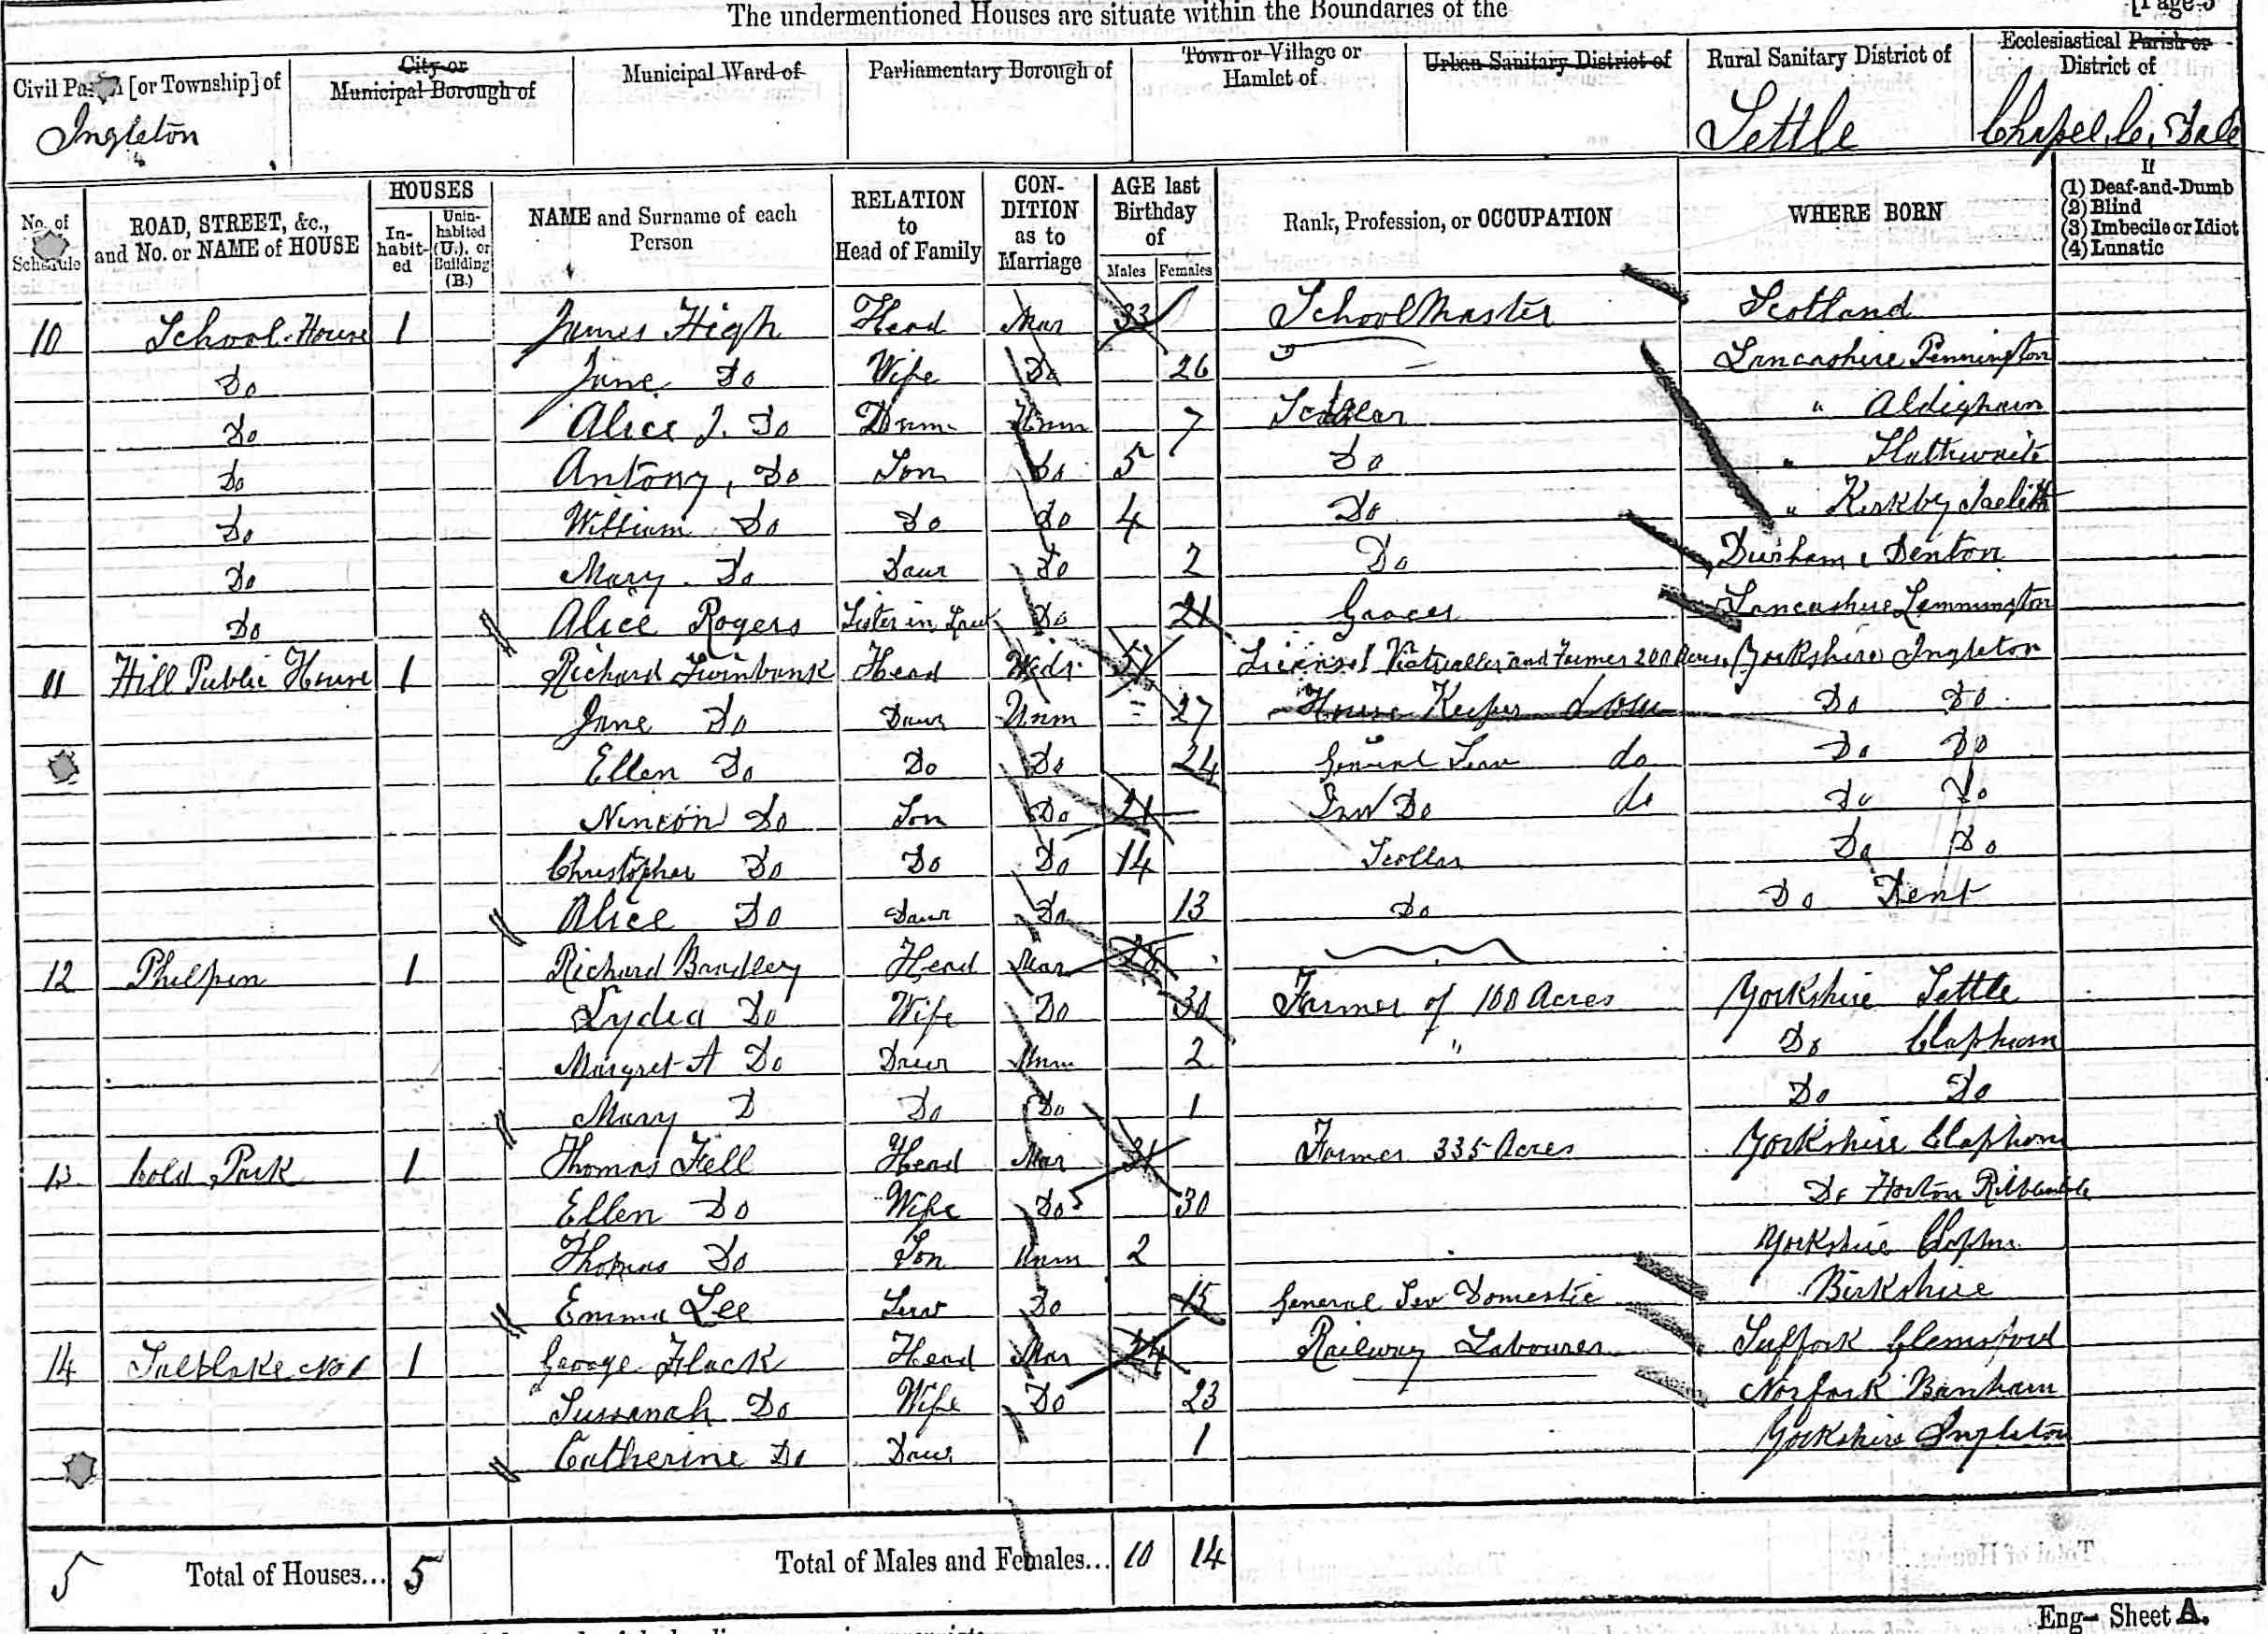 The undermentioned Houses are situate within the Boundaries of the
[Page 5
Civil Parish [or Township] of
City or Municipal Borough of
Municipal Ward of
Parliamentary Borough of
Town or Village or Hamlet of
Urban Sanitary District of
Rural Sanitary District of
Ecclesiastical Parish or District of
Ingleton
Settle
Chapel le Dale
No. of Schedule
ROAD, STREET, &c., and No. or NAME of HOUSE
HOUSES
In-habit-ed
Unin-habited (U.), or Building (B.)
NAME and Surname of each Person
RELATION to Head of Family
CON-DITION as to Marriage
AGE last Birthday of
Males Females
Rank, Profession, or OCCUPATION
WHERE BORN
If
(1) Deaf-and-Dumb
(2) Blind
(3) Imbecile or Idiot
(4) Lunatic
10 School House 1 James High Head Mar 33 School Master Scotland
Do Jane Do Wife Do 26 Lancashire Pennington
Do Alice J. Do Unm 7 Scholar " Aldigham
Do Antony, Do Son Do 5 Do "
Do William Do Do Do 4 Do " Kirkby
Do Mary Do Daur Do 2 Do Durham Denton
Do Alice Rogers Sister in Law Do 21 Grocer Lancashire
11 Hill Public House 1 Richard Twinbank Head 57 Victualler and Farmer 200 Acres Yorkshire Ingleton
Jane Do Daur Unm 27 House Keeper Do Do
Ellen Do Do Do 24 General Serv do Do Do
Do Son Do 21 Do do Do Do
Christopher Do Do Do 14 Scollar Do Do
Alice Do Daur Do 13 Do Do Dent
12 Philpin 1 Richard Bradley Head Mar 28
Lydia Do Wife Do 30 Farmer of 100 Acres Yorkshire Settle
Margret A Do Daur Unm 2 " Do Clapham
Mary D Do Do 1 Do Do
13 Cold Park 1 Thomas Fell Head Mar 31 Farmer 335 Acres Yorkshire Clapham
Ellen Do Wife Do 30 Do Horton
Thomas Do Son Unm 2 Yorkshire
Emma Lee Serv Do 15 General Sev Domestic Birkshire
14 No 1 1 George Flack Head Mar 24 Railway Labourer Suffork Glemsford
Sussanah Do Wife Do 23 Norfork Banham
Catherine Do Daur 1 Yorkshire Ingleton
5 Total of Houses... 5 Total of Males and Females... 10 14
Eng- Sheet A.